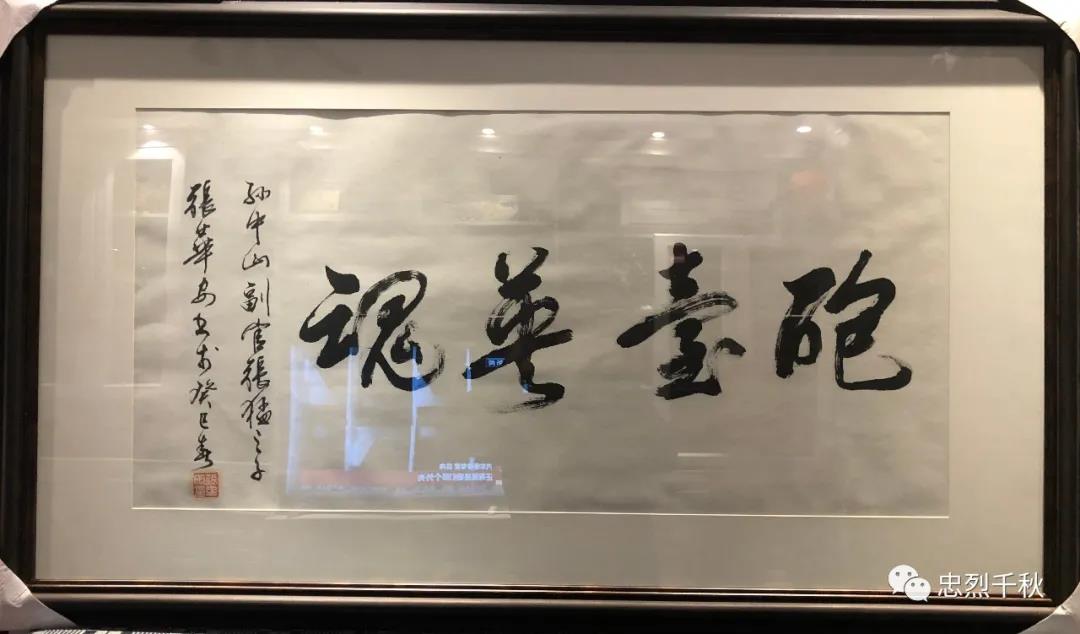 砲臺英魂
孫中山副官張猛之子
張華安书於癸巳春
忠烈千秋